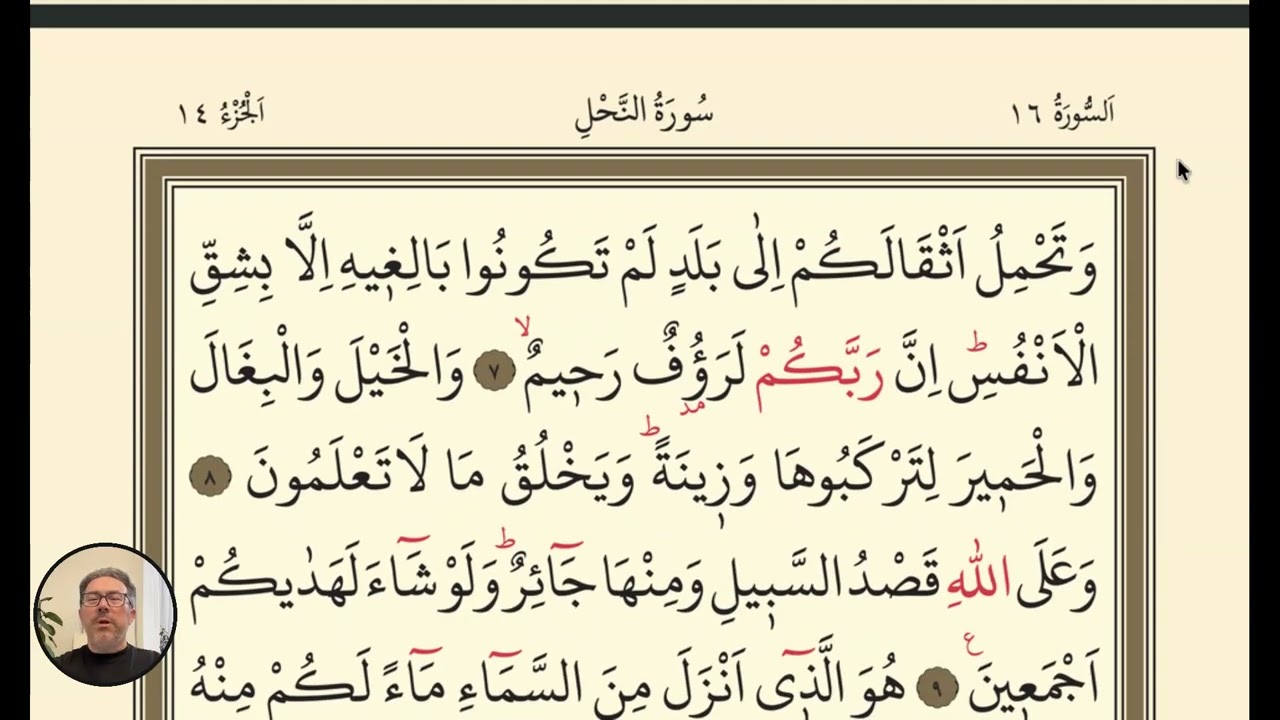 اَلسُّورَةُ ١٦ سُورَةُ النَّحْلِ اَلْجُزْءُ ١٤
وَتَحْمِلُ اَثْقَالَكُمْ اِلٰى بَلَدٍ لَمْ تَكُونُوا بَالِغ۪يهِ اِلَّا بِشِقِّ
الْاَنْفُسِۜ اِنَّ رَبَّكُمْ لَرَؤُ۫فٌ رَح۪يمٌۙ ٧ وَالْخَيْلَ وَالْبِغَالَ
وَالْحَم۪يرَ لِتَرْكَبُوهَا وَز۪ينَةًۜ وَيَخْلُقُ مَا لَا تَعْلَمُونَ ٨
وَعَلَى اللّٰهِ قَصْدُ السَّب۪يلِ وَمِنْهَا جَٓائِرٌۜ وَلَوْ شَٓاءَ لَهَدٰيكُمْ
اَجْمَع۪ينَ ع ٩ هُوَ الَّذ۪ٓى اَنْزَلَ مِنَ السَّمَٓاءِ مَٓاءً لَكُمْ مِنْهُ